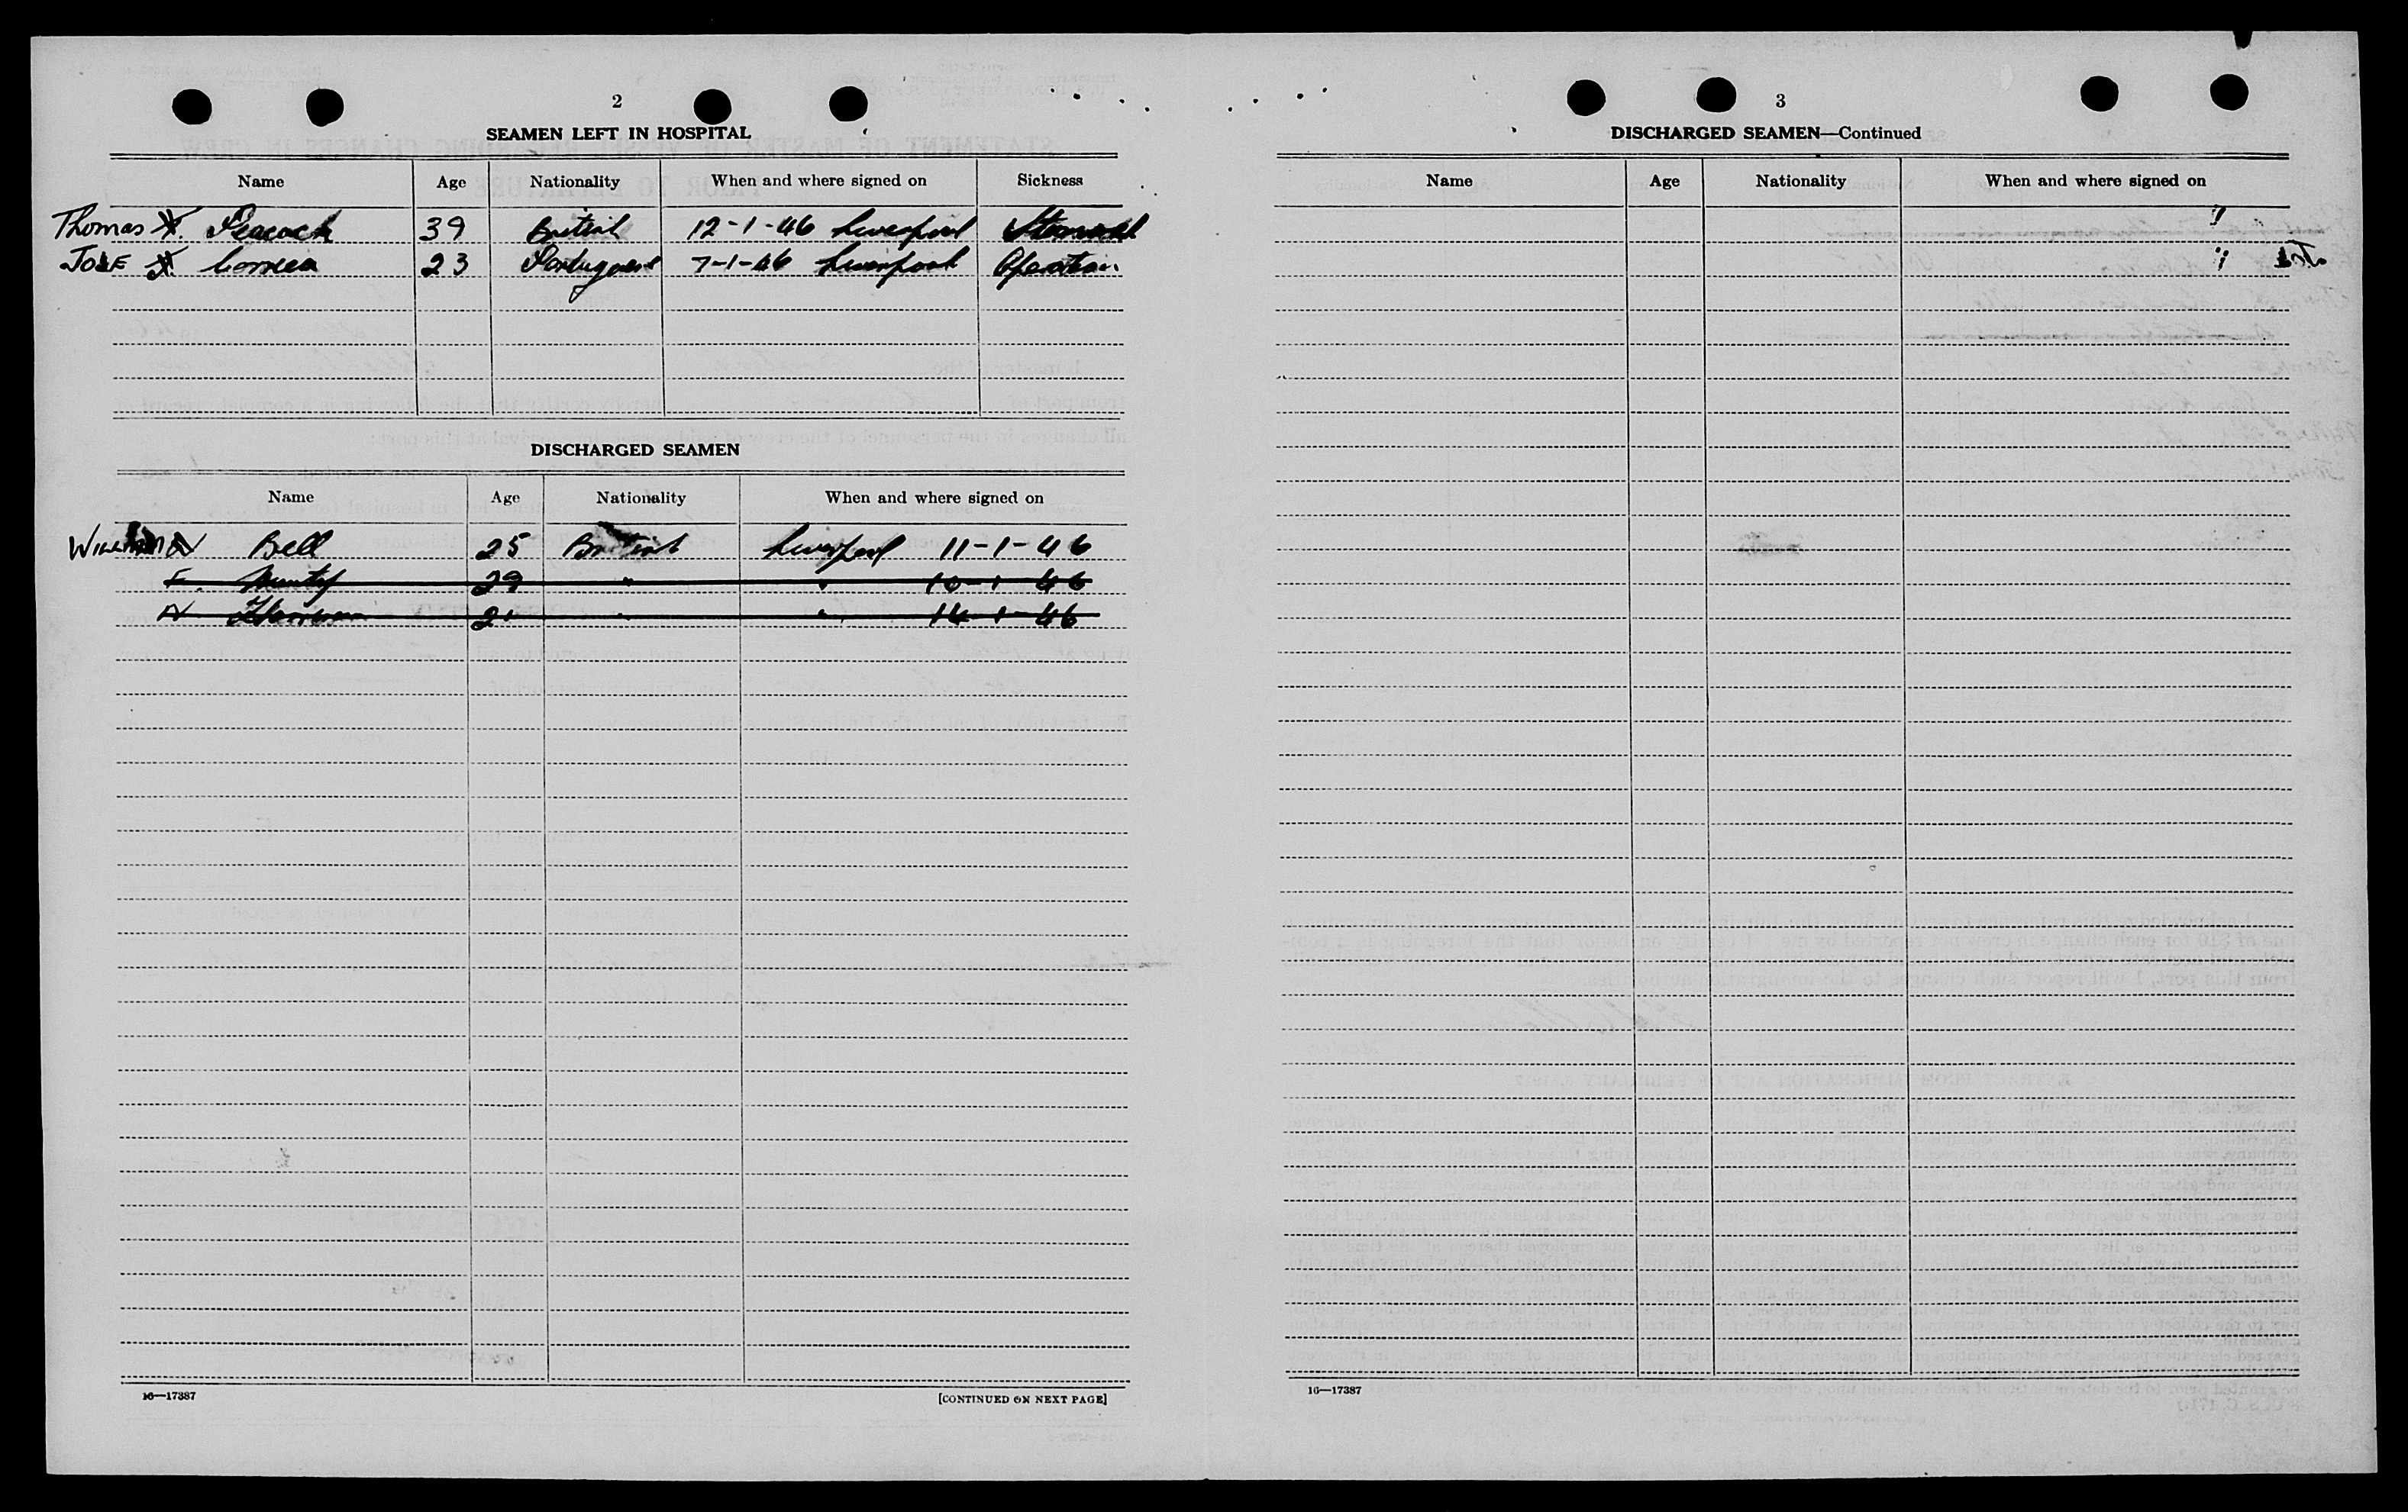 2
SEAMEN LEFT IN HOSPITAL
Name Age Nationality When and where signed on Sickness
Thomas Peacock 39 British 12-1-46 Liverpool Stomach
JOSE Correia 23 Portuguese 7-1-46 Liverpool Operation
DISCHARGED SEAMEN
Name Age Nationality When and where signed on
WILLIAM Bell 25 British Liverpool 11-1-46
F. 29 " " 10-1-46
" " 14-1-46
16—17387 [CONTINUED ON NEXT PAGE]
3
DISCHARGED SEAMEN—Continued
Name Age Nationality When and where signed on
16—17387